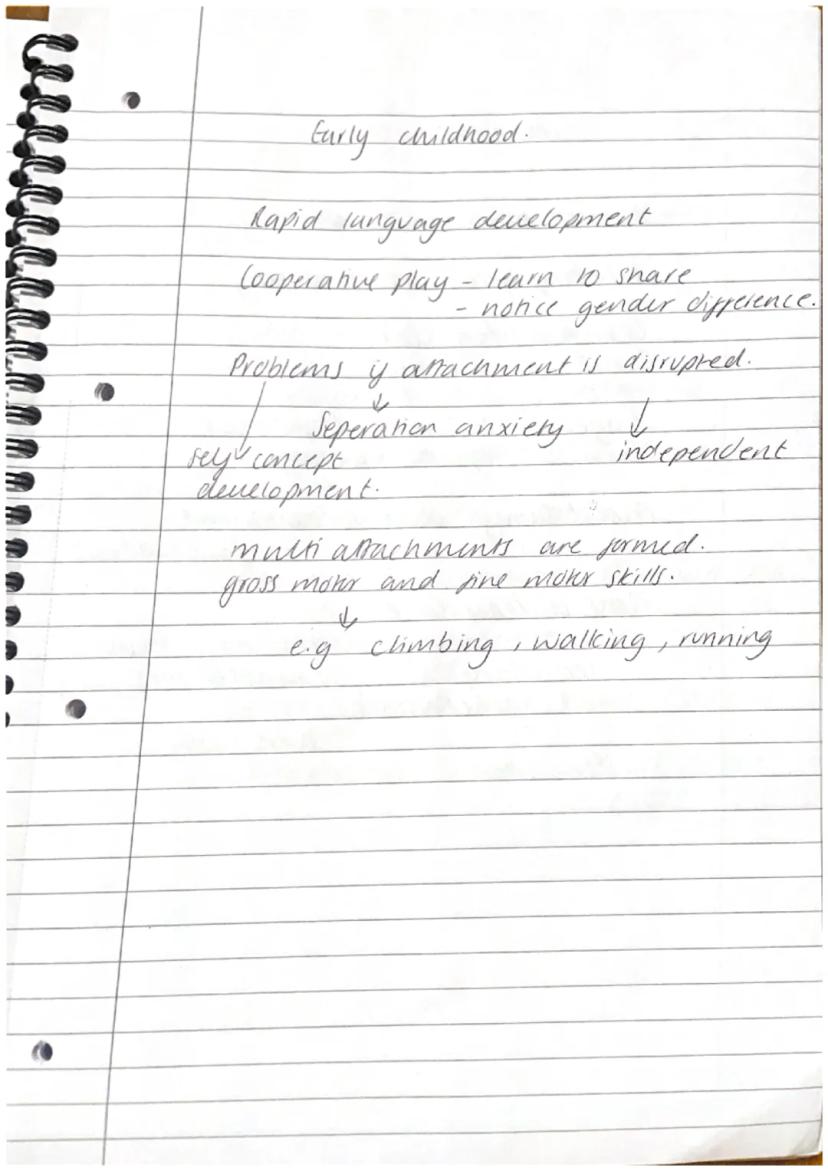 Early childhood.
Rapid language development
Cooperative play - learn to share
- notice gender difference.
Problems if attachment is disrupted.
↓ Seperation anxiety
↓ independent
self concept
development.
multi attachments are formed.
gross motor and fine motor skills.
↓
e.g climbing, walking, running